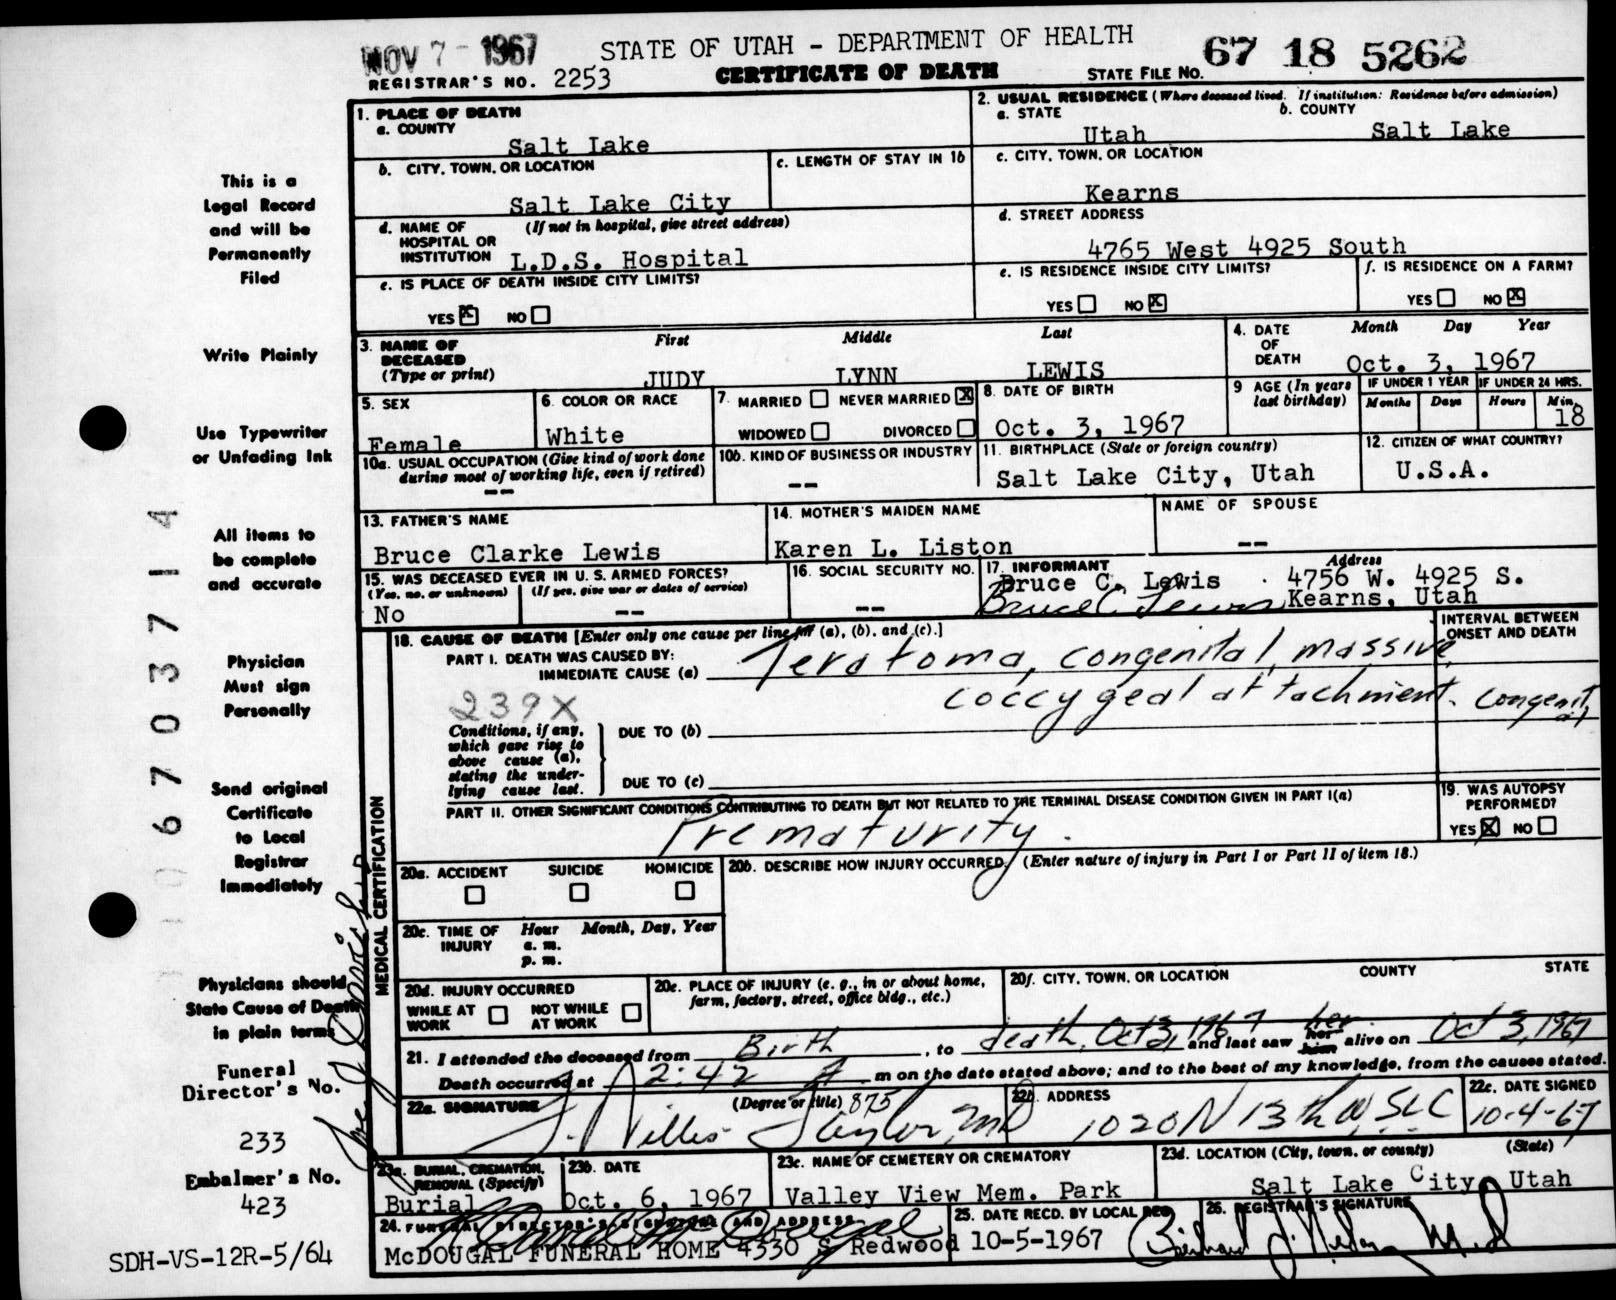 NOV 7 - 1967 STATE OF UTAH - DEPARTMENT OF HEALTH 67 18 5262
REGISTRAR'S NO. 2253 CERTIFICATE OF DEATH STATE FILE NO.
1. PLACE OF DEATH
a. COUNTY
Salt Lake
2. USUAL RESIDENCE (Where deceased lived. If institution: Residence before admission)
a. STATE b. COUNTY
Utah Salt Lake
b. CITY, TOWN, OR LOCATION
Salt Lake City
c. LENGTH OF STAY IN 1b
c. CITY, TOWN, OR LOCATION
Kearns
d. NAME OF HOSPITAL OR INSTITUTION (If not in hospital, give street address)
L.D.S. Hospital
d. STREET ADDRESS
4765 West 4925 South
e. IS PLACE OF DEATH INSIDE CITY LIMITS?
YES X NO
e. IS RESIDENCE INSIDE CITY LIMITS?
YES NO X
f. IS RESIDENCE ON A FARM?
YES NO X
3. NAME OF DECEASED (Type or print)
First Middle Last
JUDY LYNN LEWIS
4. DATE OF DEATH Month Day Year
Oct. 3, 1967
5. SEX
Female
6. COLOR OR RACE
White
7. MARRIED NEVER MARRIED X
WIDOWED DIVORCED
8. DATE OF BIRTH
Oct. 3, 1967
9 AGE (In years last birthday)
IF UNDER 1 YEAR IF UNDER 24 HRS.
Months Days Hours Min.
18
10a. USUAL OCCUPATION (Give kind of work done during most of working life, even if retired)
--
10b. KIND OF BUSINESS OR INDUSTRY
--
11. BIRTHPLACE (State or foreign country)
Salt Lake City, Utah
12. CITIZEN OF WHAT COUNTRY?
U.S.A.
13. FATHER'S NAME
Bruce Clarke Lewis
14. MOTHER'S MAIDEN NAME
Karen L. Liston
NAME OF SPOUSE
--
15. WAS DECEASED EVER IN U.S. ARMED FORCES?
(Yes, no, or unknown) (If yes, give war or dates of service)
No --
16. SOCIAL SECURITY NO.
--
17. INFORMANT Address
Bruce C. Lewis 4756 W. 4925 S.
Bruce C. Lewis Kearns, Utah
MEDICAL CERTIFICATION
18. CAUSE OF DEATH [Enter only one cause per line for (a), (b), and (c).]
INTERVAL BETWEEN ONSET AND DEATH
PART I. DEATH WAS CAUSED BY:
IMMEDIATE CAUSE (a) Teratoma, congenital, massive
coccygeal attachment. Congenital
239X
Conditions, if any, which gave rise to above cause (a), stating the underlying cause last.
DUE TO (b)
DUE TO (c)
PART II. OTHER SIGNIFICANT CONDITIONS CONTRIBUTING TO DEATH BUT NOT RELATED TO THE TERMINAL DISEASE CONDITION GIVEN IN PART I(a)
Prematurity.
19. WAS AUTOPSY PERFORMED?
YES X NO
20a. ACCIDENT SUICIDE HOMICIDE
20b. DESCRIBE HOW INJURY OCCURRED. (Enter nature of injury in Part I or Part II of item 18.)
20c. TIME OF INJURY Hour Month, Day, Year
a. m.
p. m.
20d. INJURY OCCURRED
WHILE AT WORK NOT WHILE AT WORK
20e. PLACE OF INJURY (e. g., in or about home, farm, factory, street, office bldg., etc.)
20f. CITY, TOWN, OR LOCATION COUNTY STATE
21. I attended the deceased from Birth, to death, Oct 3, 1967 and last saw her her him alive on Oct 3, 1967
Death occurred at 12:42 A m on the date stated above; and to the best of my knowledge, from the causes stated.
22a. SIGNATURE (Degree or title) 875
Taylor, MD
22b. ADDRESS
SLC
22c. DATE SIGNED
10-4-67
23a. BURIAL, CREMATION, REMOVAL (Specify)
Burial
23b. DATE
Oct. 6, 1967
23c. NAME OF CEMETERY OR CREMATORY
Valley View Mem. Park
23d. LOCATION (City, town, or county) (State)
Salt Lake City Utah
24. FUNERAL DIRECTOR'S SIGNATURE AND ADDRESS
McDOUGAL FUNERAL HOME 4330 S Redwood
25. DATE RECD. BY LOCAL REG.
10-5-1967
26. REGISTRAR'S SIGNATURE
M.D
This is a
Legal Record
and will be
Permanently
Filed
Write Plainly
Use Typewriter
or Unfading Ink
All items to
be complete
and accurate
Physician
Must sign
Personally
Send original
Certificate
to Local
Registrar
Immediately
Physicians should
State Cause of Death
in plain terms
Funeral
Director's No.
233
Embalmer's No.
423
SDH-VS-12R-5/64